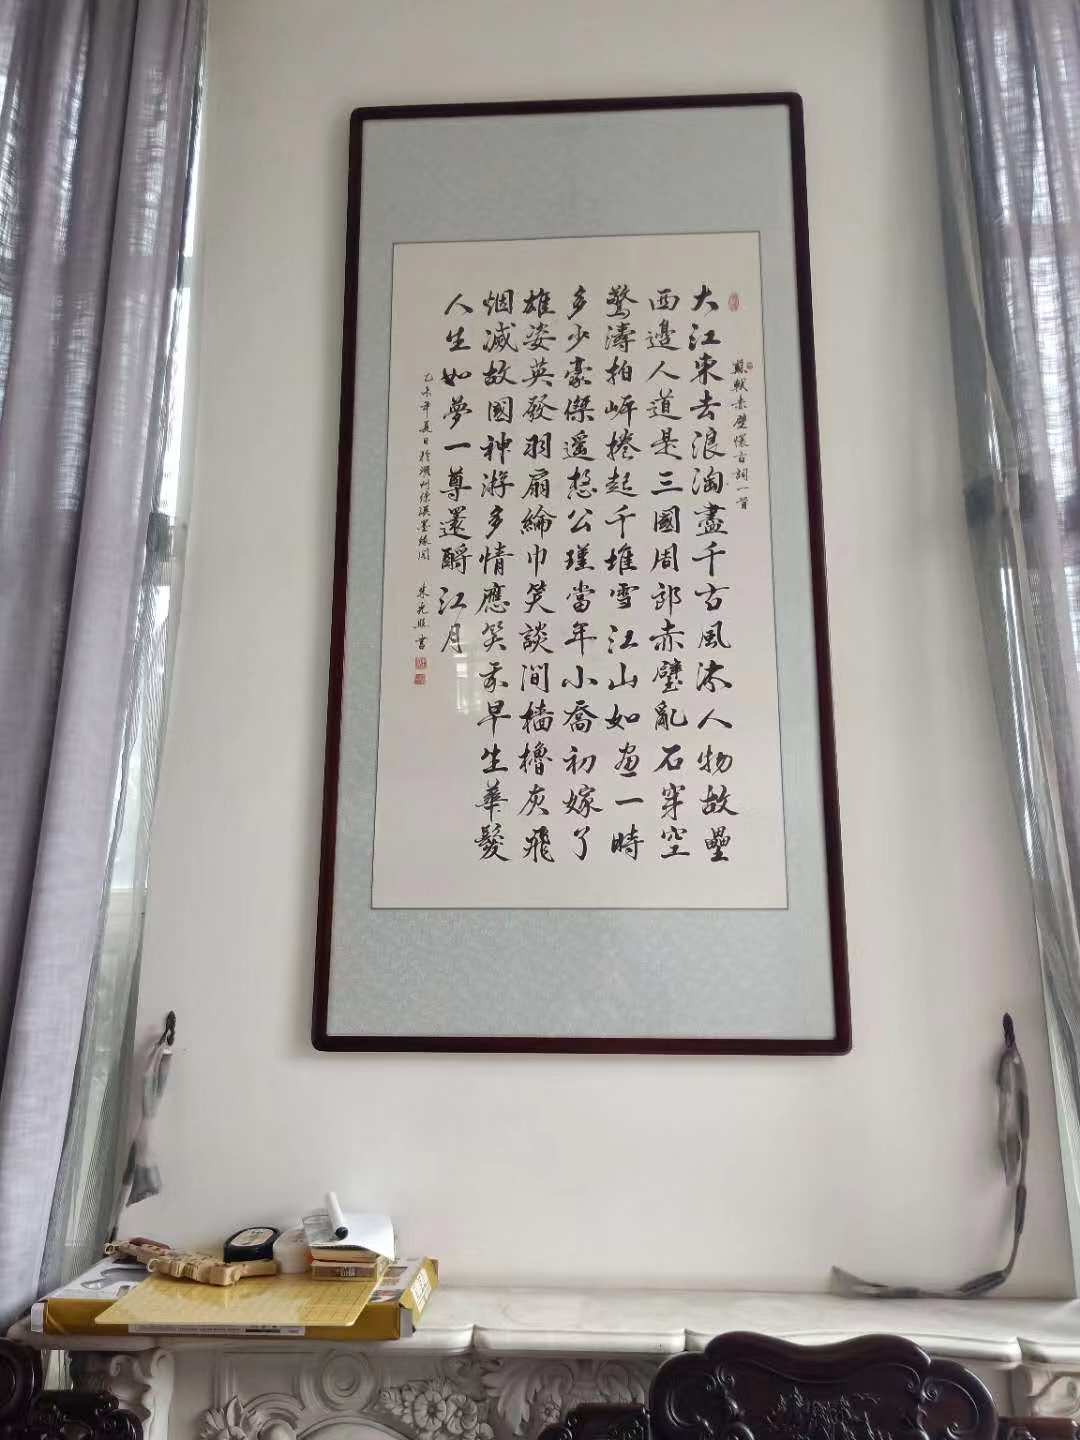 蘇軾赤壁懷古詞一首
大江東去浪淘盡千古風流人物故壘
西邊人道是三國周郎赤壁亂石穿空
驚濤拍岸捲起千堆雪江山如畫一時
多少豪傑遥想公瑾當年小喬初嫁了
雄姿英發羽扇綸巾笑談間檣櫓灰飛
烟滅故國神游多情應笑我早生華髮
人生如夢一尊還酹江月
乙未年夏日於湖州 墨緣閣 朱 書